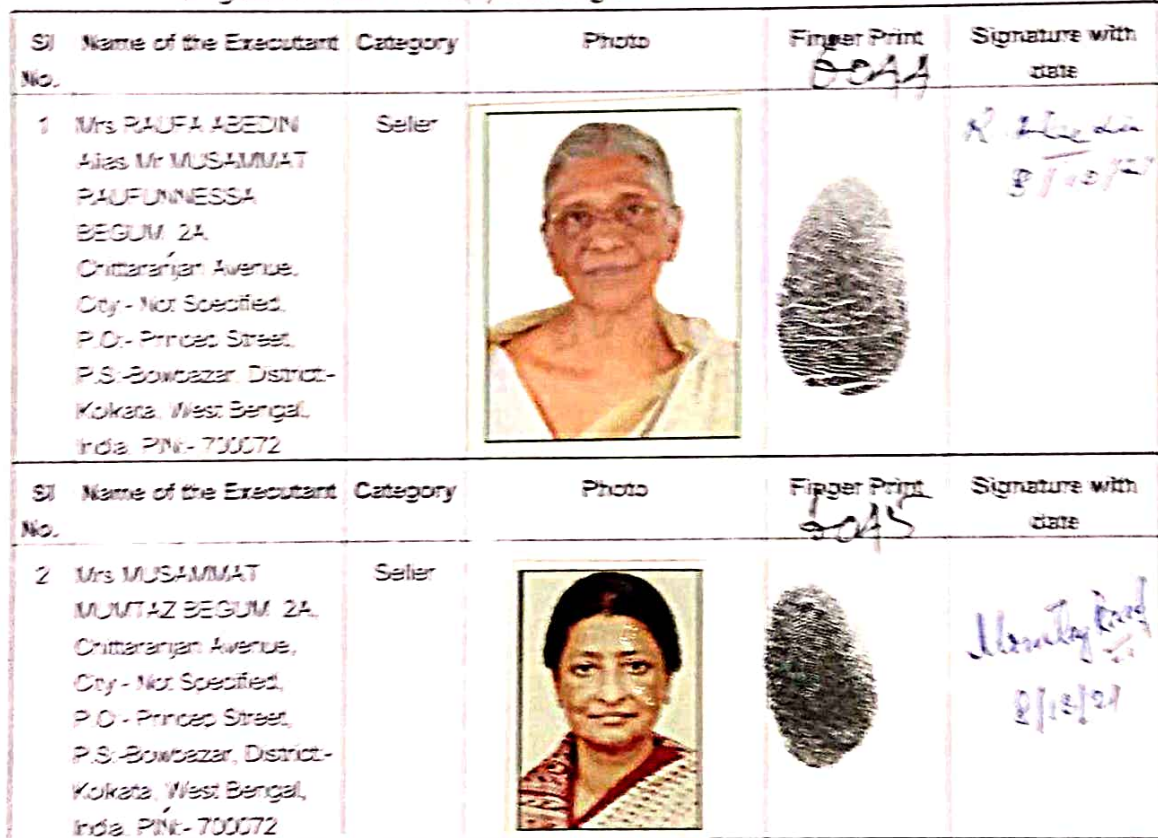 Sl No. Name of the Executant Category Photo Finger Print Signature with date
1 Mrs RAUFA ABEDIN Seller
Alias Mr MUSAMMAT
RAUFUNNESSA
BEGUM 2A,
Chittaranjan Avenue,
City - Not Specified,
P.O:- Princep Street,
P.S:-Bowbazar, District:-
Kolkata, West Bengal,
India, PIN:- 700072
Sl No. Name of the Executant Category Photo Finger Print Signature with date
2 Mrs MUSAMMAT Seller
MUMTAZ BEGUM 2A,
Chittaranjan Avenue,
City - Not Specified,
P.O:- Princep Street,
P.S:-Bowbazar, District:-
Kolkata, West Bengal,
India, PIN:- 700072